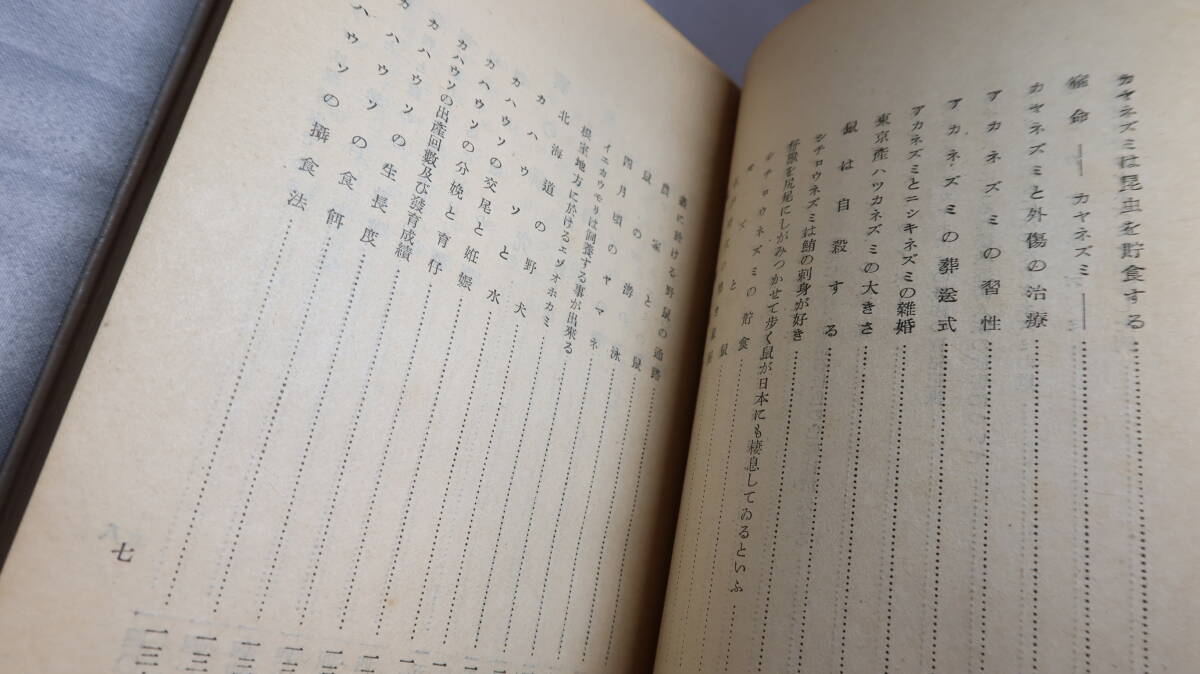 カヤネズミは昆虫を貯食する
宿命――カヤネズミ――
カヤネズミと外傷の治療
アカネズミの習性
アカネズミの葬送式
アカネズミとニシキネズミの雑婚
東京産ハツカネズミの大きさ
鼠は自殺する
シチロウネズミは鮪の刺身が好き
仔鼠を尻尾にしがみつかせて歩く鼠が日本にも棲息してゐるといふ
シチロウネズミの貯食
に於ける野鼠の通路
農家と鼠
鼠の游泳
四月頃のヤマネ
イエカウモリは飼養する事が出来る
根室地方に於けるエゾオホカミ
北海道の野犬
カハウソと水
カハウソの交尾と妊娠
カハウソの分娩と育仔
カハウソの出産回數及び發育成績
カハウソの生長度
カハウソの食餌
ハウソの攝食法
七